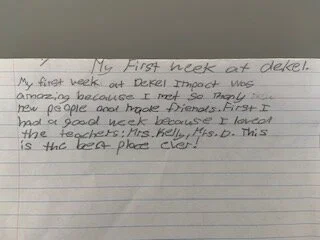 My First week at dekel.
My first week at Dekel Impact was
amazing because I met so many
new people and made friends. First I
had a good week because I loved
the teachers: Mrs. Kelly, Mrs. D. This
is the best place ever!